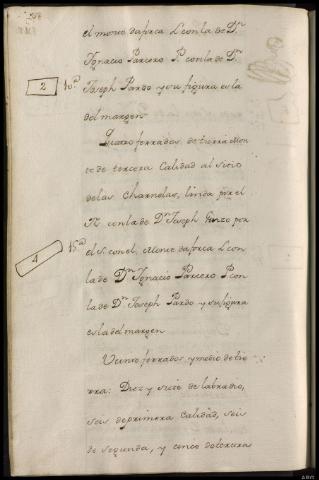 el monte da forca L con la de Dn
Ygnacio Parcero P. con la de Dn
2 10 Joseph Pardo y su figura es la
del margen
Quatro ferrados de tierra Mon
te de tercera Calidad al Sitio
de las Charnelas, linda por el
N. con la de Dn Joseph por
4 15 el S. con el Monte da forca L con
la de Dn Ygnacio Parcero P con
la de Dn Joseph Pardo y su figura
es la del margen
Veinte ferrados, y medio de tie
rra: Diez y siete de labradio,
seis de primera Calidad, seis
de segunda, y cinco de tercera